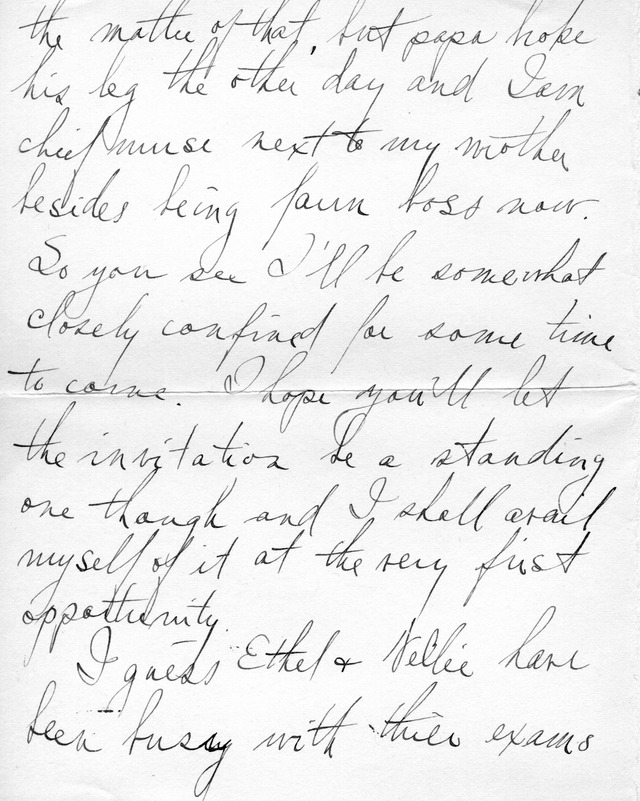 the matter of that, but papa broke
his leg the other day and I am
chief nurse next to my mother
besides being farm boss now.
So you see I'll be somewhat
closely confined for some time
to come. I hope you'll let
the invitation be a standing
one though and I shall avail
myself of it at the very first
oppottunity.
I guess Ethel & Nellie have
been bussy with thier exams